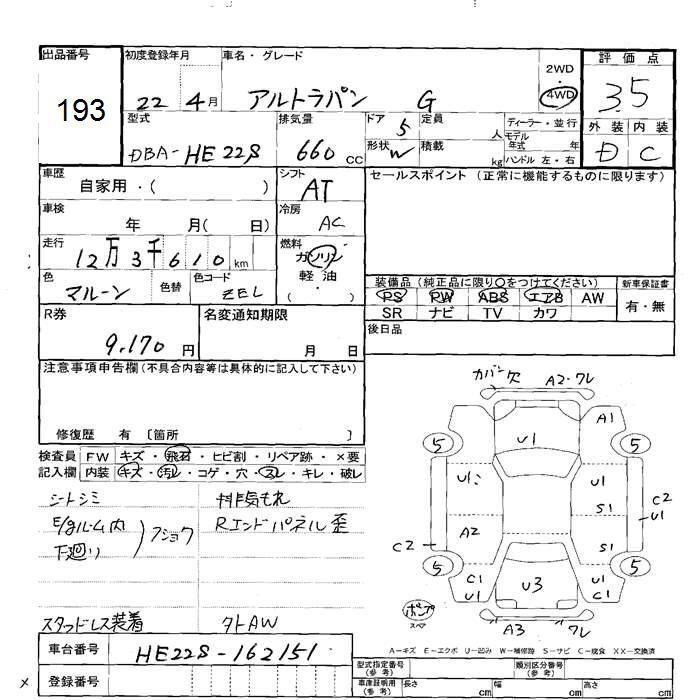 出品番号 初度登録年月 車名・グレード 評価点
193
22 4月 アルトラパン G 2WD・4WD 35
型式 排気量 ドア 定員 ディーラー・並行 外装 内装
DBA-HE22S 660 CC 5 人 モデル年式 年 D C
形状 W 積載 kg ハンドル 左・右
車歴 シフト セールスポイント (正常に機能するものに限ります)
自家用・( ) AT
車検 冷房
年 月( 日) AC
走行 燃料
12万3千610km ガソリン
色 色替 色コード 軽油
マルーン ZEL ( ・ )
装備品(純正品に限り○をつけてください) 新車保証書
PS PW ABS エアB AW 有・無
SR ナビ TV カワ
R券 名変通知期限 後日品
9,170円 月 日
注意事項申告欄(不具合内容等は具体的に記入して下さい)
修復歴 有 〔箇所 〕
検査員 FW キズ・飛石・ヒビ割・リペア跡・×要
記入欄 内装 キズ・汚レ・コゲ・穴・スレ・キレ・破レ
シートシミ 排気もれ
E/gルーム内 Rエンドパネル歪
下廻り フショク
スタッドレス装着 タトAW
車台番号 HE22S-162151
× 登録番号
カバン欠 A2・ワレ
A1
5 U1 5
U1 U1
S1 C2
U1
A2
C2 S1
5 5
C1 U3 U1
U1 C1
ポンプ
スペア
A3 ワレ
A-キズ E-エクボ U-凹み W-補修跡 S-サビ C-腐食 XX-交換済
型式指定番号(参考) 類別区分番号(参考)
車庫証明用(参考) 長さ cm 幅 cm 高さ cm